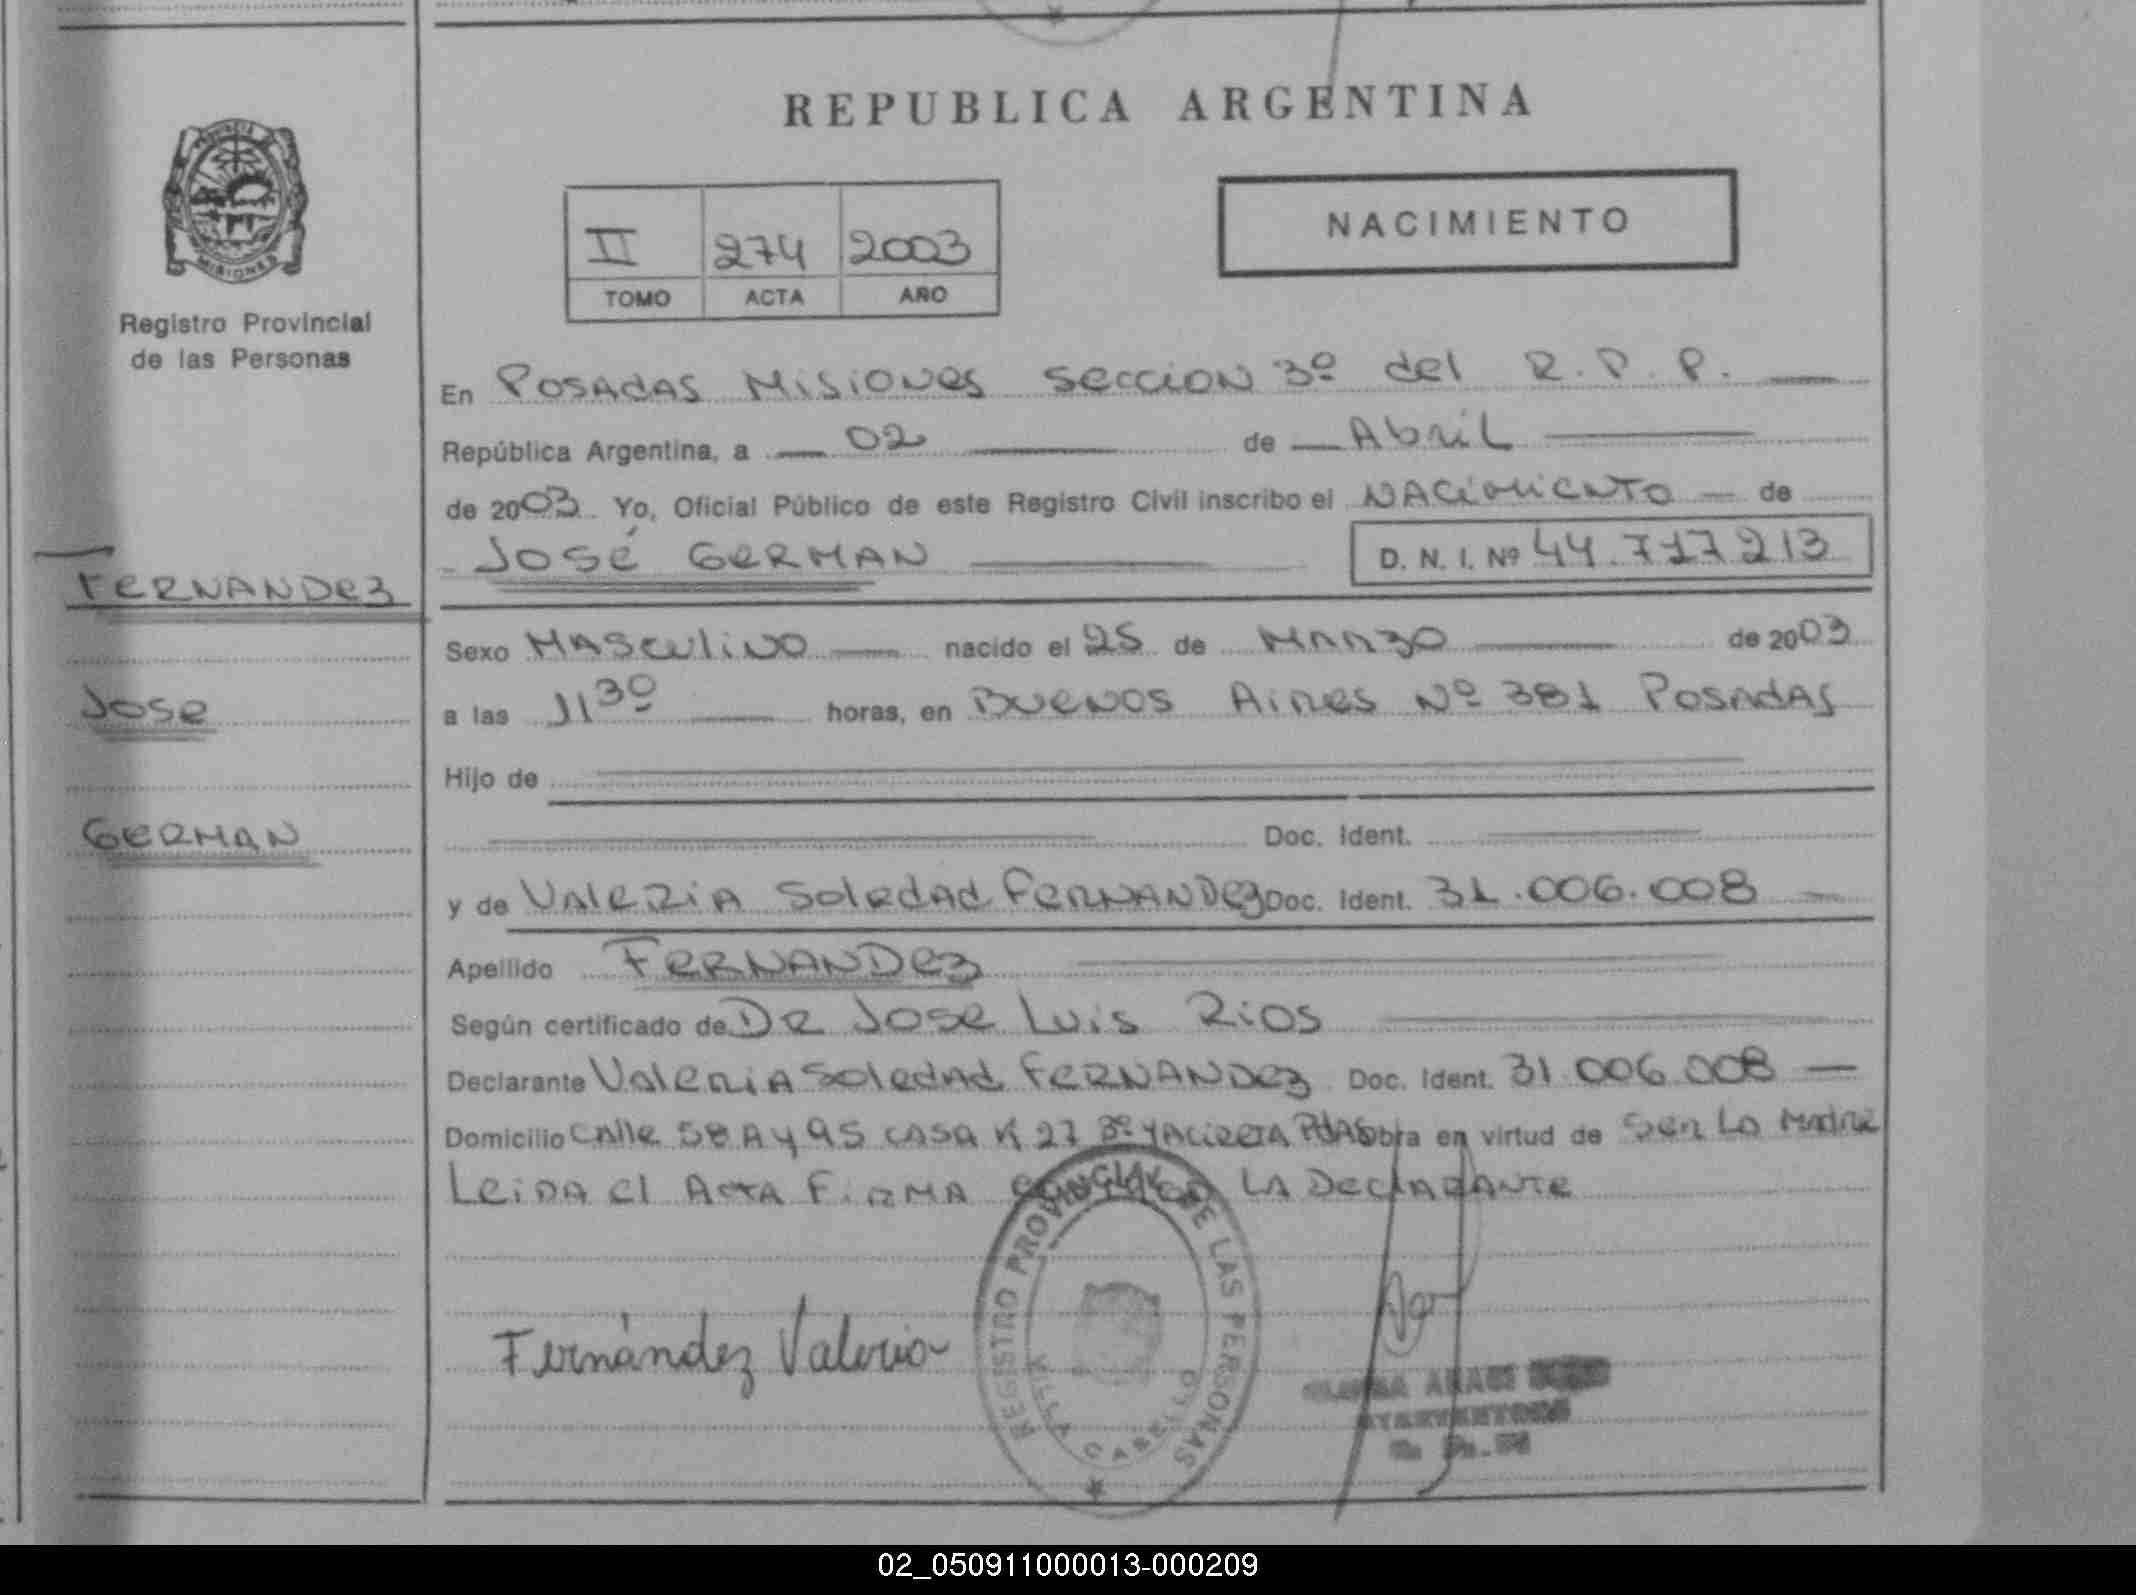 REPUBLICA ARGENTINA
MISIONES
Registro Provincial
de las Personas
II 274 2003
TOMO ACTA AÑO
NACIMIENTO
En POSADAS MISIONES SECCION 3º del R.P.P.
República Argentina, a 02 de Abril
de 2003 Yo, Oficial Público de este Registro Civil inscribo el NACIMIENTO de
JOSÉ GERMAN D. N. I. Nº 44.717.213
FERNANDEZ
JOSE
GERMAN
Sexo MASCULINO nacido el 25 de MARZO de 2003
a las 11 30 horas, en BUENOS AIRES Nº 381 POSADAS
Hijo de
Doc. Ident.
y de VALERIA SOLEDAD FERNANDEZ Doc. Ident. 31.006.008
Apellido FERNANDEZ
Según certificado de DR JOSE LUIS RIOS
Declarante VALERIA SOLEDAD FERNANDEZ Doc. Ident. 31.006.008
Domicilio CALLE 58 A y 95 CASA K 27 YACIRETA PDAS Obra en virtud de SER LA MADRE
LEIDA el ACTA FIRMA LA DECLARANTE
REGISTRO PROVINCIAL DE LAS PERSONAS
VILLA CABELLO
Fernández Valeria
02_050911000013-000209